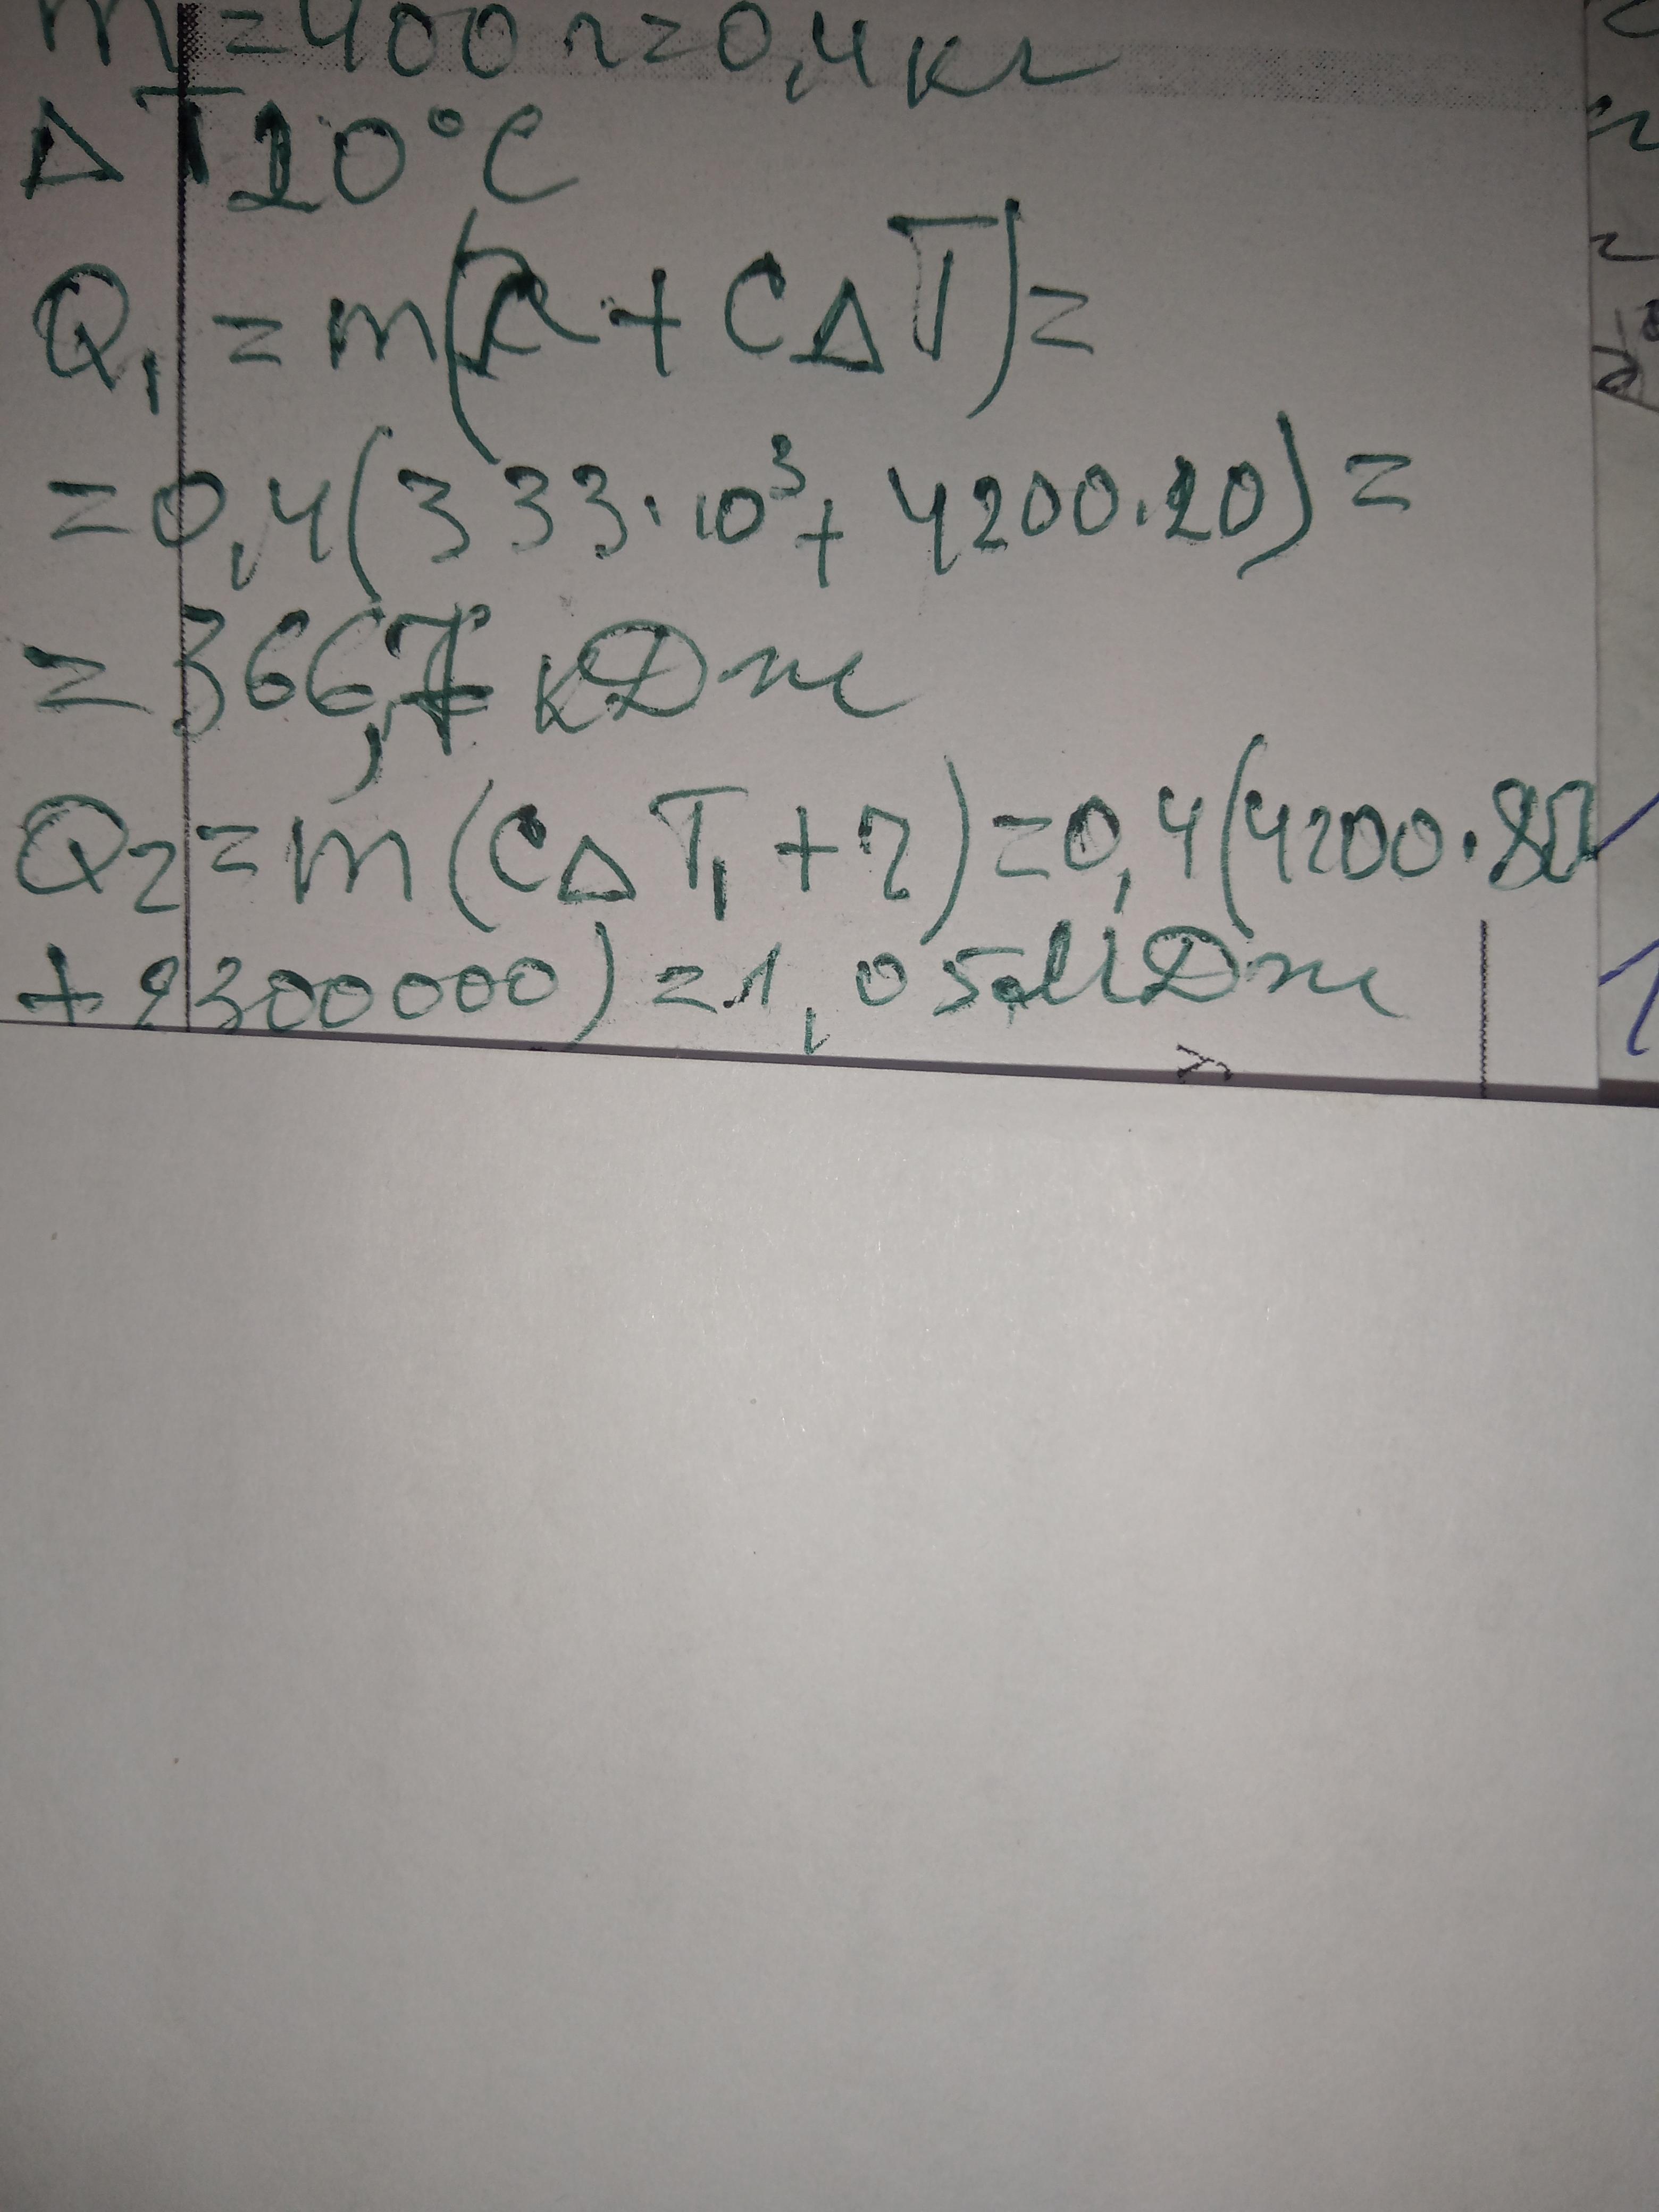 m = 400 г = 0,4 кг
ΔT 20°C
Q₁ = m(λ + CΔT) =
= 0,4(333·10³ + 4200·20) =
= 366,7 кДж
Q₂ = m(CΔT₁ + r) = 0,4(4200·80
+ 2300000) = 1,05 МДж